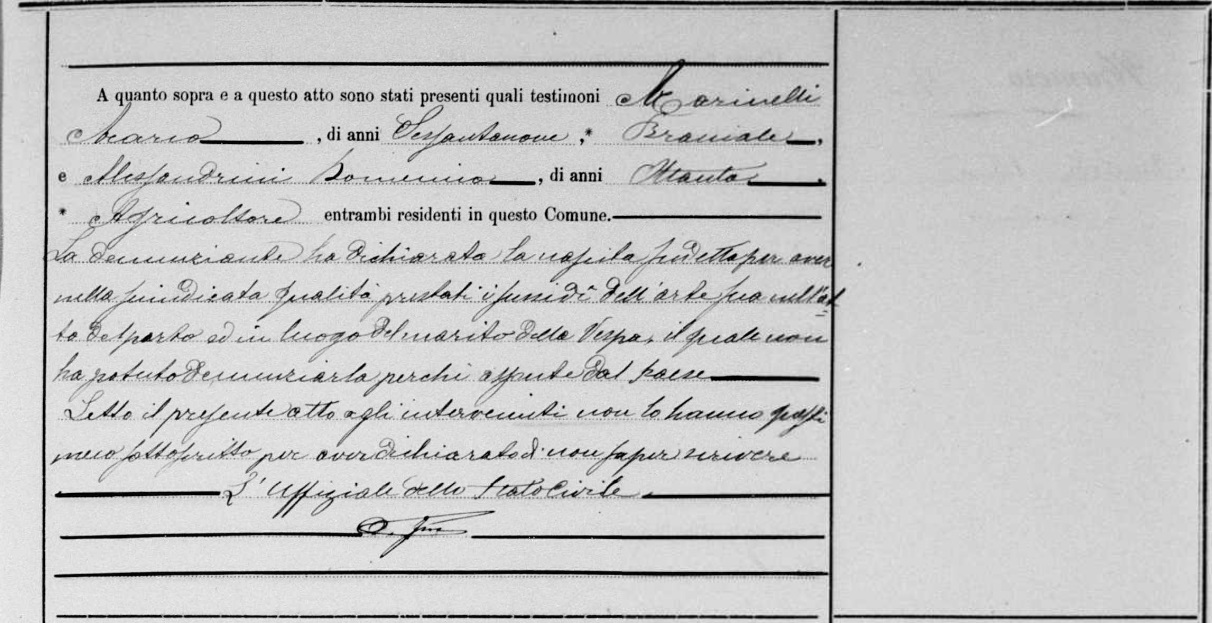 A quanto sopra e a questo atto sono stati presenti quali testimoni Marinelli
Mario, di anni Sessantanove, * Braciale,
e Alessandrini Domenico, di anni ottanta
* Agricoltore entrambi residenti in questo Comune.
La denunziante ha dichiarata la nascita sudetta per aver
nella sindicata qualità prestati i sussidi dell'arte sua nell'at
to del parto ed in luogo del marito della Vespa, il quale non
ha potuto denunziarla perchè assente dal paese
Letto il presente atto agli intervenuti non lo hanno
meco sottoscritto per aver dichiarato di non saper scrivere
L'Uffiziale dello Stato Civile